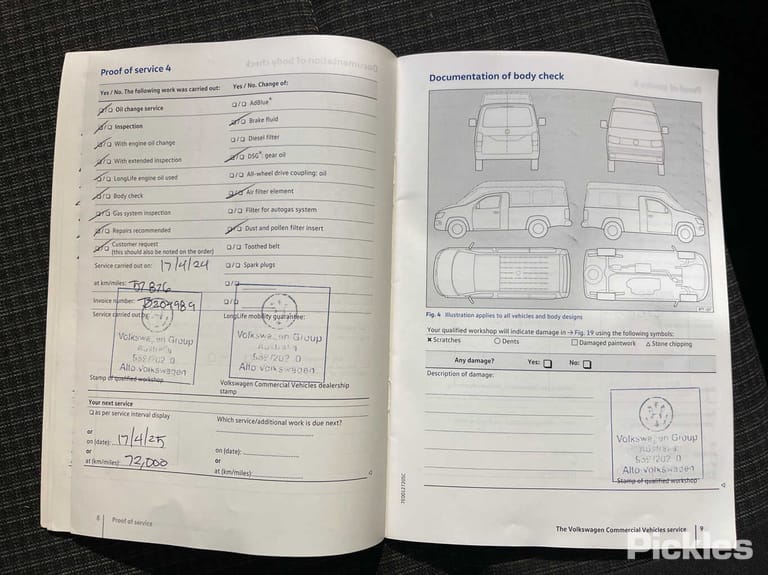 Proof of service 4
Yes / No. The following work was carried out:
Oil change service
Inspection
With engine oil change
With extended inspection
LongLife engine oil used
Body check
Gas system inspection
Repairs recommended
Customer request
(this should also be noted on the order)
Service carried out on: 17/4/24
at km/miles: 57876
Invoice number:
Service carried out by:
Volkswagen Group
Australia
Alto Volkswagen
Stamp of qualified workshop
Yes / No. Change of:
AdBlue®
Brake fluid
Diesel filter
DSG®: gear oil
All-wheel drive coupling: oil
Air filter element
Filter for autogas system
Dust and pollen filter insert
Toothed belt
Spark plugs
LongLife mobility guarantee:
Volkswagen Group
Australia
Alto Volkswagen
Volkswagen Commercial Vehicles dealership
stamp
Your next service
as per service interval display
or
on (date): 17/4/25
or
at (km/miles): 72,000
Which service/additional work is due next?
on (date):
or
at (km/miles):
8 Proof of service
Documentation of body check
Fig. 4 Illustration applies to all vehicles and body designs
Your qualified workshop will indicate damage in → Fig. 19 using the following symbols:
✕ Scratches ○ Dents □ Damaged paintwork △ Stone chipping
Any damage? Yes: □ No: □
Description of damage:
Volkswagen Group
Australia
Alto Volkswagen
Stamp of qualified workshop
7E0012720SC
The Volkswagen Commercial Vehicles service 9
Pickles